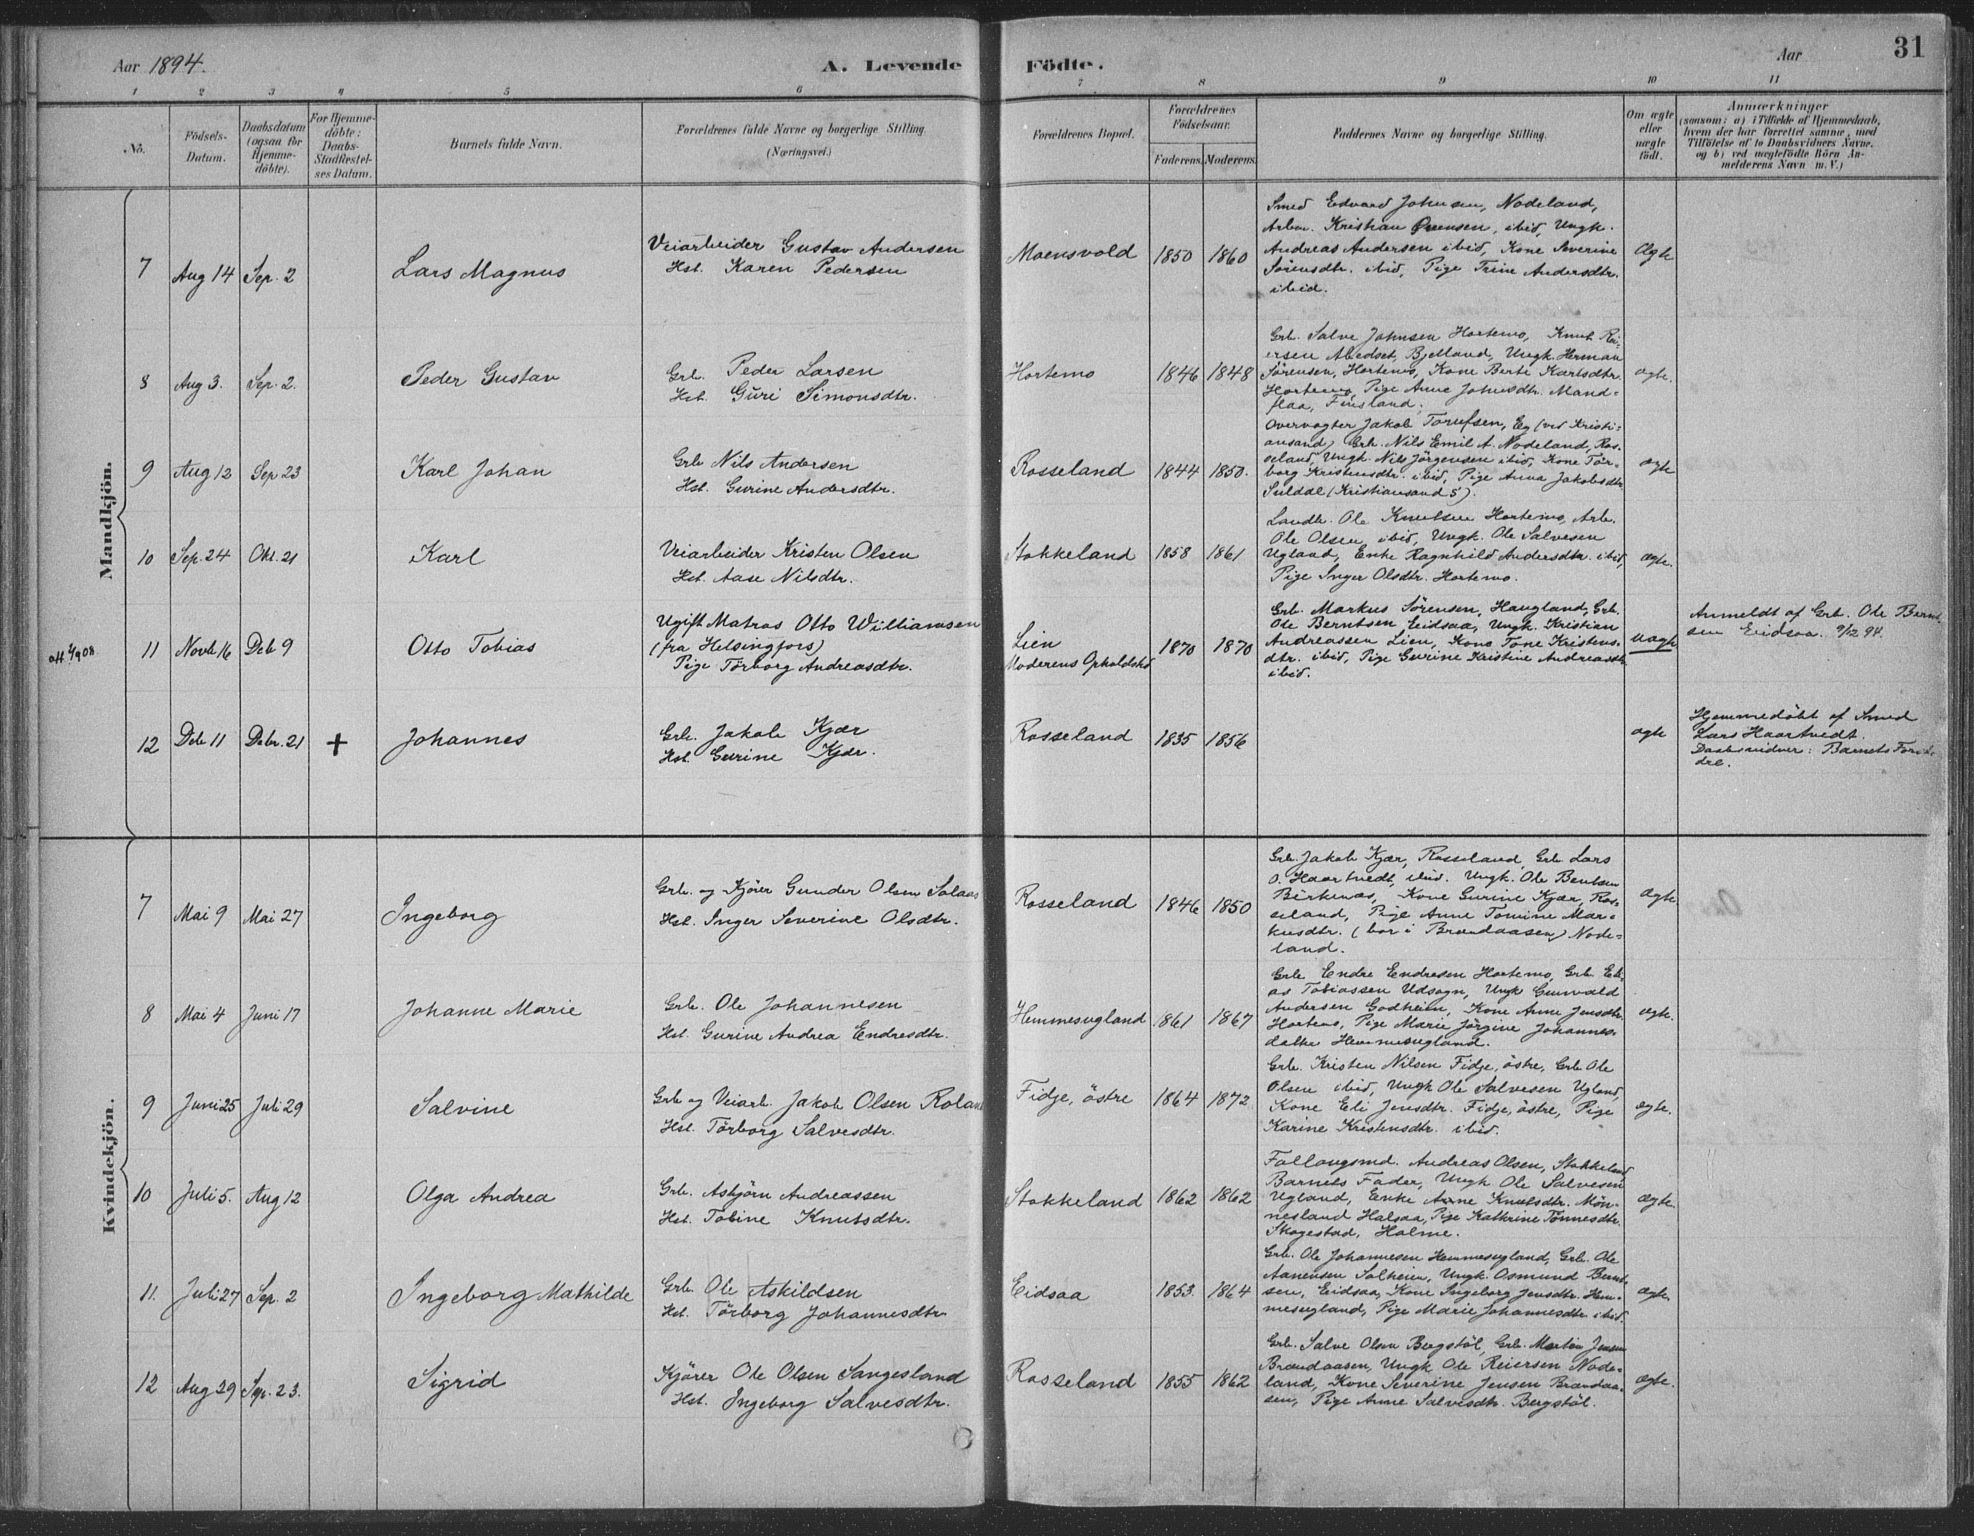 Aar 1894.
A. Levende Födte.
Aar
31
1 2 3 4 5 6 7 8 9 10 11
No.
Födsels-
Datum.
Daabsdatum
(ogsaa for
Hjemme-
döbte).
For Hjemme-
döbte:
Daabs-
Stadfæstel-
ses Datum.
Barnets fulde Navn.
Forældrenes fulde Navne og borgerlige Stilling.
(Næringsvei.)
Forældrenes Bopæl.
Forældrenes
Födselsaar.
Faderens. Moderens.
Faddernes Navne og borgerlige Stilling.
Om ægte
eller
uægte
födt.
Anmærkninger
(saasom: a) i Tilfælde af Hjemmedaab,
hvem der har forrettet samme, med
Tilföielse af to Daabsvidners Navne,
og b) ved uægtefödte Börn An-
melderens Navn m. V.)
Mandkjön.
7 Aug 14 Sep. 2 Lars Magnus
Veiarbeider Gustav Andersen
Hst. Karen Pedersen
Moensvold 1850 1860
Smed Edvard Johnsen, Nodeland,
Arbm. Kristian ibid, Ungk.
Andreas Andersen ibid, Kone Severine
Sørensdtr. ibid, Pige Trine Andersdtr.
ibid.
Ægte
8 Aug 3. Sep. 2. Peder Gustav
Grb. Peder Larsen
Hst. Guri Simonsdtr.
Hortemo 1846 1848
Grb. Salve Johnsen Hortemo, Knut Re-
iersen Bjelland, Ungk. Herman
Sørensen, Hortemo, Kone Berte Karlsdtr.
Hortemo, Pige Anne Johnsdtr. Mand-
flaa, Finsland.
ægte.
9 Aug 12 Sep 23 Karl Johan
Grb Nils Andersen
Hst. Gurine Andersdtr.
Rosseland 1844 1850.
Overvogter Jakob Eg (ved Kristi-
ansand) Grb. Nils Emil A. Nodeland, Ros-
seland, Ungk. Nils Jörgensen ibid, Kone Tör-
borg Kristensdtr. ibid, Pige Anna Jakobsdtr
Suldal (Kristiansand S).
ægte
10 Sep. 24 Okt. 21 Karl
Veiarbeider Kristen Olsen
Hst. Aase Nilsdtr.
Stokkeland 1858 1861
Landh. Ole Knutsen Hortemo, Arb.
Ole Olsen ibid, Ungk. Ole Salvesen
Ugland, Enke Ragnhild Andersdtr. ibid,
Pige Inger Olsdtr. Hortemo.
ægte.
11 Novb 16 Deb 9 Otto Tobias
Ugift Matros Otto Williamsen
(fra Helsingfors)
Pige Törborg Andreasdtr.
Lien
Moderens Opholdsted
1870 1870
Grb. Markus Sørensen, Haugland, Grb.
Ole Berntsen Eidsaa, Ungk. Kristien
Andreassen Lien, Kone Tone Kristens-
dtr. ibid, Pige Gurine Kristine Andreasdtr
ibid.
uægte
Anmeldt af Grb. Ole Bernt-
sen Eidsaa. 9/12 94.
12 Deb 11 Debr. 21 + Johannes
Grb. Jakob Kjær
Hst. Gurine Kjær.
Rosseland 1835 1856
ægte
Hjemmedöbt af Smed
Lars Haartvedt.
Daabsvidner: Barnets Foræl-
dre.
Kvindekjön.
7 Mai 9 Mai 27 Ingeborg
Grb. og Kjører Gunder Olsen Solaas
Hst. Inger Severine Olsdtr.
Rosseland 1846 1850
Grb. Jakob Kjær, Rosseland, Grb Lars
O. Haartvedt, ibid. Ungk. Ole Bentsen
Birkenæs, Kone Gurine Kjær, Ros-
seland, Pige Anne Tomine Mar-
kusdtr. (bor i Brandaasen) Node-
land.
Ægte
8 Mai 4 Juni 17 Johanne Marie
Grb. Ole Johannesen
Hst. Gurine Andrea Endresdtr.
Hemmesugland 1861 1867
Grb Endre Endresen Hortemo, Grb Eli-
as Tobiassen Udsogn, Ungk Gunvald
Andersen Godheim, Kone Anne Jensdtr.
Hortemo, Pige Marie Jørgine Johannes-
datter Hemmesugland.
ægte.
9 Juni 25 Juli 29 Salvine
Grb og Veiarb. Jakob Olsen Roland
Hst. Törborg Salvesdtr.
Fidje, östre 1864 1872
Grb. Kristen Nilsen Fidje, östre, Grb Ole
Olsen ibid, Ungk Ole Salvesen Ugland,
Kone Eli Jensdtr. Fidje, östre, Pige
Karine Kristensdtr. ibid.
ægte.
10 Juli 5. Aug 12 Olga Andrea
Grb. Asbjörn Andreassen
Hst. Tobine Knutsdtr.
Stokkeland 1862 1862
Andreas Olsen, Stokkeland
Barnets Fader, Ungk Ole Salvesen
Ugland, Enke Anne Knutsdtr. Mön-
nesland Halsaa, Pige Kathrine Tønnesdtr.
Skogestad, Holme.
ægte.
11. Juli 27 Sep. 2 Ingeborg Mathilde
Grb. Ole Askildsen
Hst. Törborg Johannesdtr
Eidsaa 1853 1864
Grb. Ole Johannesen Hemmesugland, Grb. Ole
Aanensen Solheien, Ungk. Osmund Bernt-
sen, Eidsaa, Kone Ingeborg Jensdtr. Hem-
mesugland, Pige Marie Johannesdtr ibid.
ægte.
12 Aug 29 Sep. 23. Sigrid
Kjører Ole Olsen Sangesland
Hst. Ingeborg Salvesdtr.
Rosseland 1855 1862
Grb. Salve Olsen Bergstöl, Grb. Martin Jensen
Brandaasen, Ungk Ole Reiersen Node-
land, Kone Severine Jensen Brandaa-
sen, Pige Anne Salvesdtr. Bergstöl.
ægte.